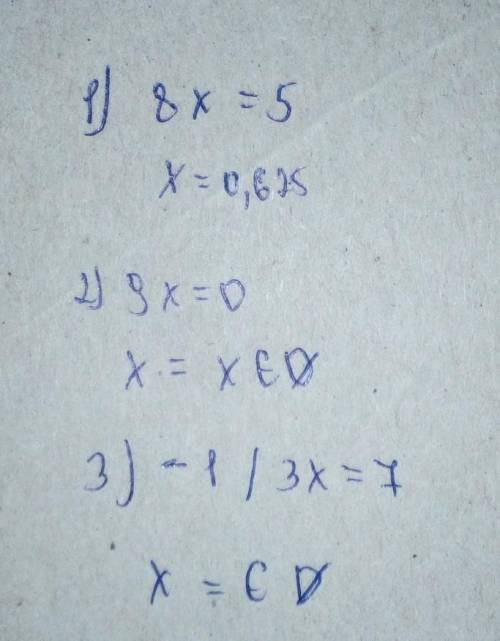 1) 8x = 5
x = 0,625
2) 9x = 0
x = x ∈ ∅
3) -1 / 3x = 7
x = ∈ ∅